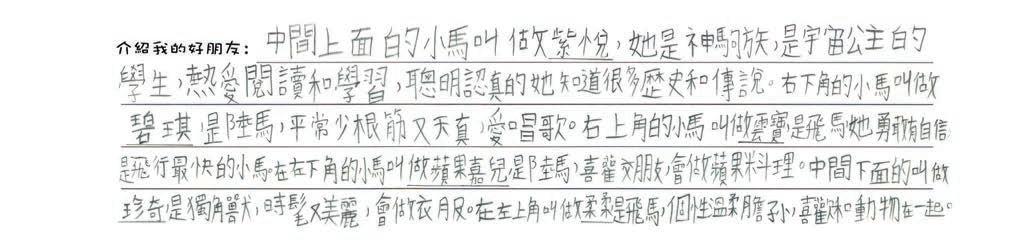 介紹我的好朋友：中間上面的小馬叫做紫悅，她是神駒族，是宇宙公主的
學生，熱愛閱讀和學習，聰明認真的她知道很多歷史和傳說。右下角的小馬叫做
碧琪是陸馬，平常少根筋又天真，愛唱歌。右上角的小馬叫做雲寶，是飛馬她勇敢有自信
是飛行最快的小馬。在左下角的小馬叫做蘋果嘉兒是陸馬，喜歡交朋友，會做蘋果料理。中間下面的叫做
珍奇是獨角獸，時髦又美麗，會做衣服。在左上角叫做柔柔是飛馬，個性溫柔膽子小，喜歡和動物在一起。